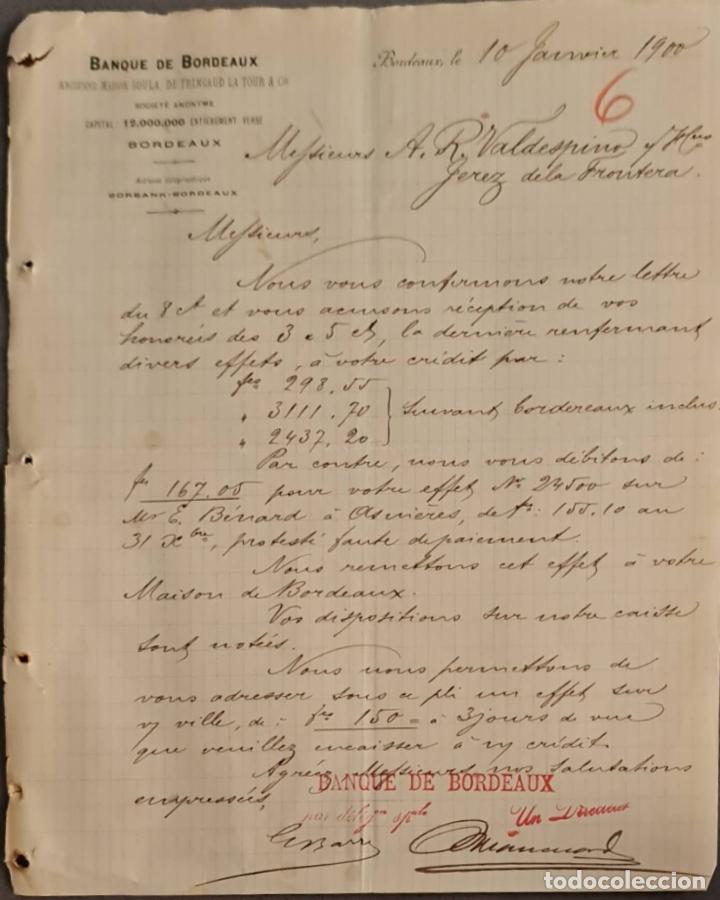 BANQUE DE BORDEAUX
ANCIENNE MAISON SOULA, DE TRINCAUD LA TOUR & Cie
SOCIÉTÉ ANONYME
CAPITAL: 12,000,000 ENTIÈREMENT VERSÉ
BORDEAUX
Adresse télégraphique
BORBANK-BORDEAUX
Bordeaux, le 10 Janvier 1900
6
Messieurs A. R. Valdespino y Hno
Jerez de la Frontera.
Messieurs,
Nous vous confirmons notre lettre
du 8 ct et vous accusons réception de vos
honorées des 3 & 5 ct, la dernière renfermant
divers effets, à votre crédit par:
frs 298.55
" 3111.70
" 2437.20
suivant bordereaux inclus.
Par contre, nous vous débitons de:
frs 167.05 pour votre effet No 24500 sur
Mr E. Bénard à Asnières, de frs: 155.10 au
31 Xbre, protesté faute de paiement.
Nous remettons cet effet à votre
Maison de Bordeaux.
Vos dispositions sur notre caisse
sont notées.
Nous nous permettons de
vous adresser sous ce pli un effet sur
v/ ville, de: frs 150 = à 3 jours de vue
que veuillez encaisser à n/ crédit.
Agréez Messieurs nos salutations
empressées,
BANQUE DE BORDEAUX
par délégon spale
Un Directeur
todocoleccion.net